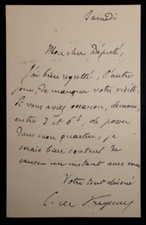 Samedi
Mon cher Député,
J'ai bien regretté, l'autre
jour, de manquer votre visite.
Si vous aviez occasion, demain,
entre 5 et 6h, de passer
dans mon quartier, je
serais bien content de
causer un instant avec vous.
Votre tout dévoué
C. de Freycinet